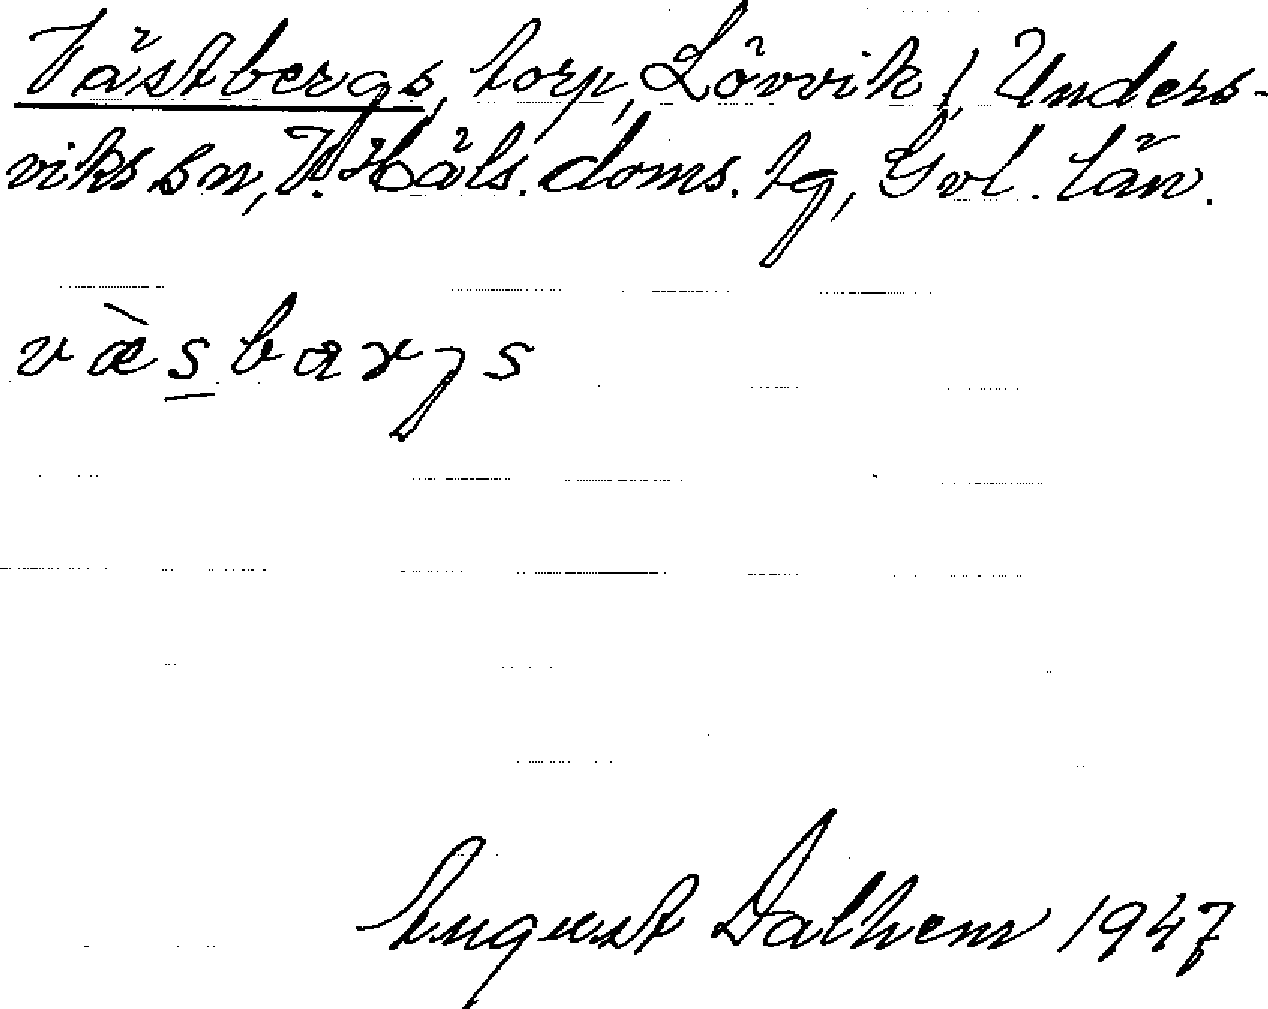 Västbergs, torp, Lövvik 1, Unders-
viks sn, V. Häls. doms. tg, Gvl. län.
væ̀s̲barjs
August Dalhem 1947